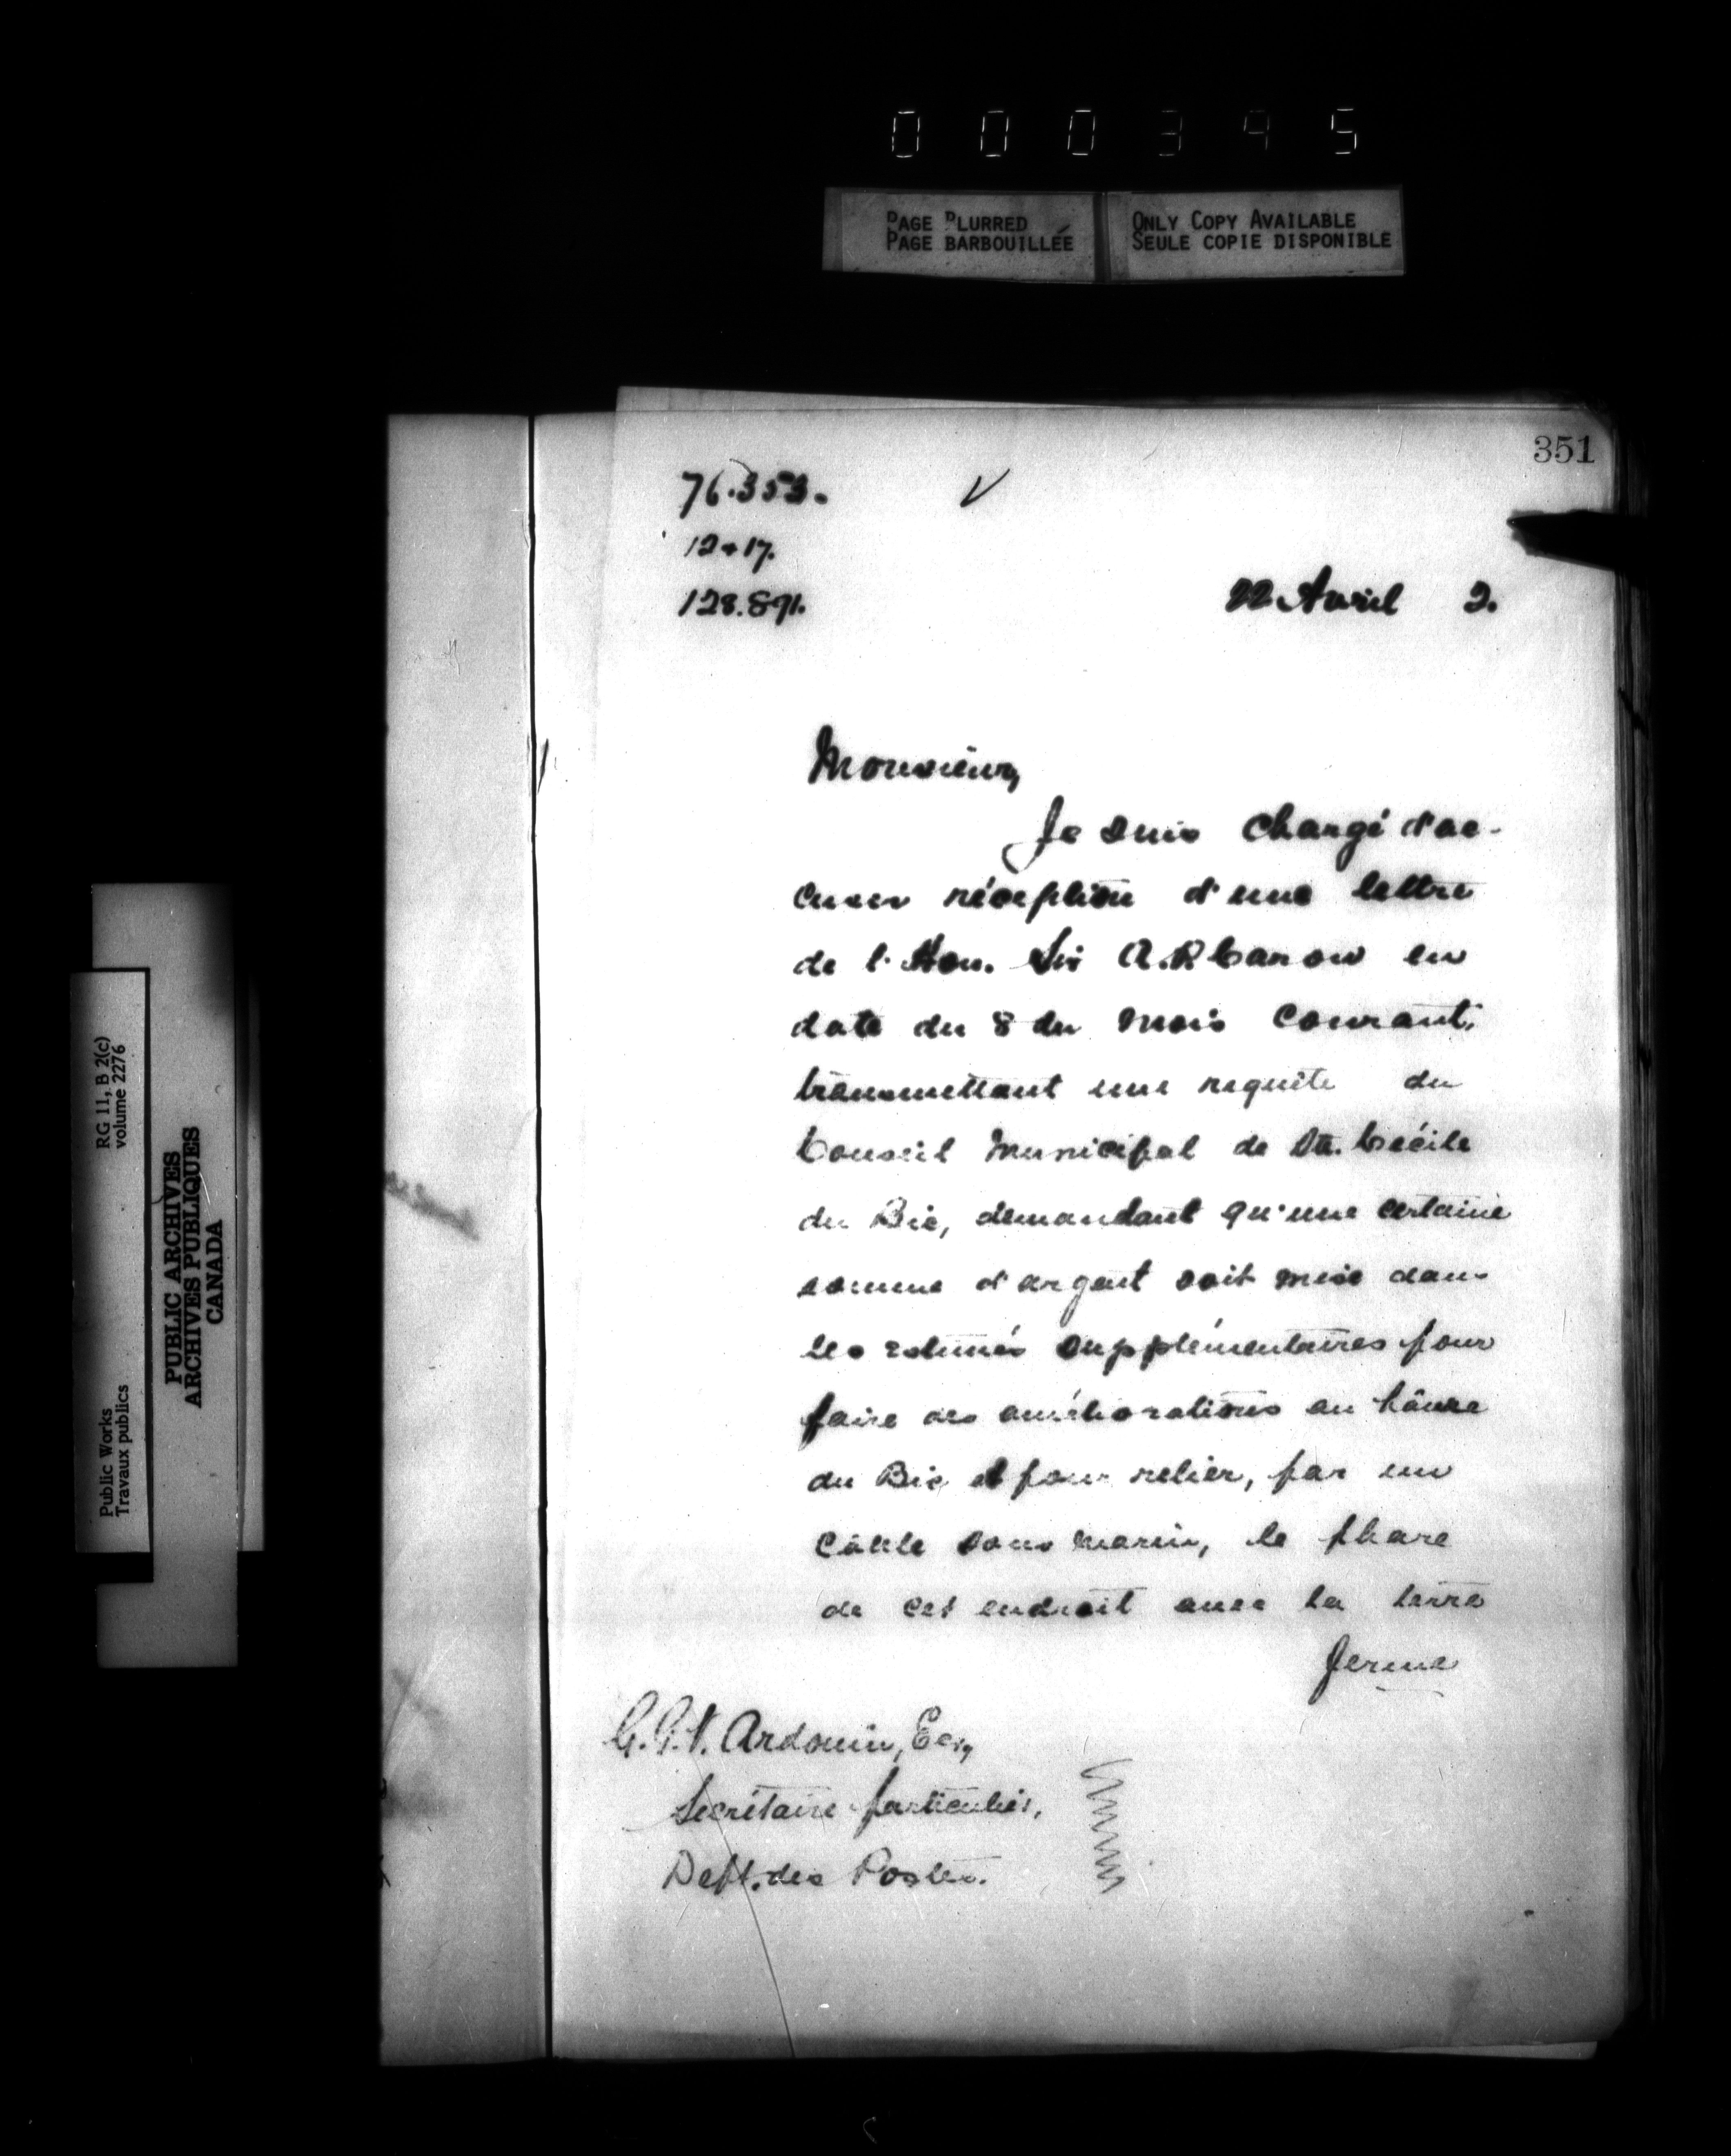 000395
PAGE BLURRED
PAGE BARBOUILLÉE
ONLY COPY AVAILABLE
SEULE COPIE DISPONIBLE
351
76.353.
12+17.
128.891.
22 Avril 2.
Monsieur,
Je suis chargé d'ac-
cuser réception d'une lettre
de l'Hon. Sir A.P. Caron en
date du 8 du mois courant,
transmettant une requête du
Conseil Municipal de Ste. Cécile
du Bic, demandant qu'une certaine
somme d'argent soit mise dans
les estimés supplémentaires pour
faire des améliorations au hâvre
du Bic et pour relier, par un
câble sous marin, le phare
de cet endroit avec la terre
ferme
Ardouin, Esq,
Secrétaire particulier,
Dept. des Postes.
RG 11, B 2(c)
volume 2276
Public Works
Travaux publics
PUBLIC ARCHIVES
ARCHIVES PUBLIQUES
CANADA